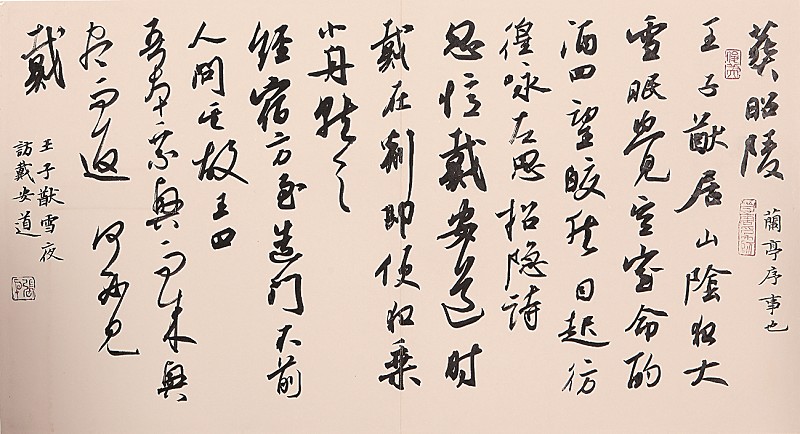 葬昭陵
蘭亭序事也
王子猷居山陰夜大
雪眠覺室命酌
酒四望皎然因起彷
徨咏左思招隐詩
忽憶戴安道时
戴在剡即便夜乘
小舟就之
經宿方至造门不前
人問其故王曰
吾本乘興而来興
尽而返何必見
戴
王子猷雪夜
訪戴安道